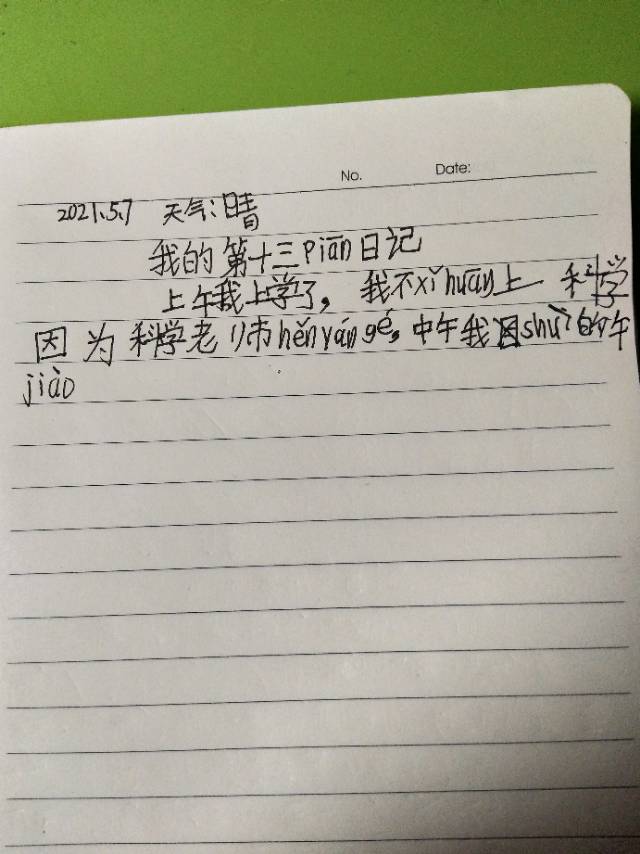 No. Date:
2021.5.7 天气:晴
我的第十三piān日记
上午我上学了,我不xǐhuān上科学
因为科学老师hěnyángé,中午我shuì的午
jiào